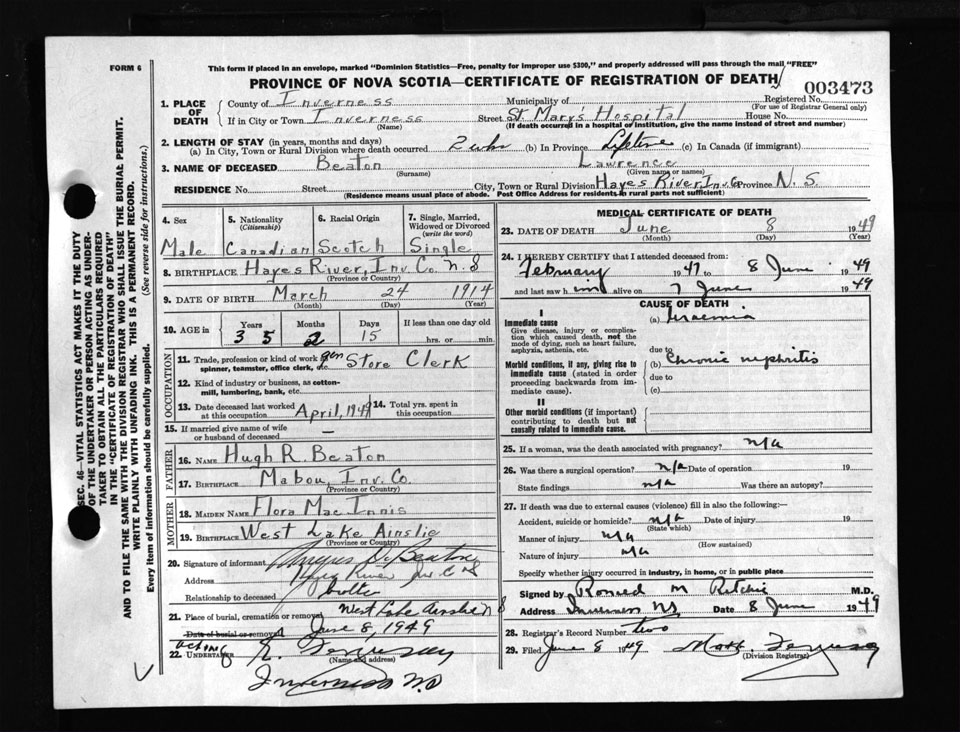 FORM 6
This form if placed in an envelope, marked "Dominion Statistics—Free, penalty for improper use $300," and properly addressed will pass through the mail "FREE"
PROVINCE OF NOVA SCOTIA—CERTIFICATE OF REGISTRATION OF DEATH
003473
1. PLACE OF DEATH
County of Inverness Municipality of Registered No.
(For use of Registrar General only)
If in City or Town Inverness Street St. Mary's Hospital House No.
(Name) (If death occurred in a hospital or institution, give the name instead of street and number)
2. LENGTH OF STAY (in years, months and days)
(a) In City, Town or Rural Division where death occurred 2 wks (b) In Province Lifetime (c) In Canada (if immigrant)
3. NAME OF DECEASED Beaton Lawrence
(Surname) (Given name or names)
RESIDENCE No. Street City, Town or Rural Division Hayes River, Inv. Co Province N. S.
(Residence means usual place of abode. Post Office Address for residents in rural parts not sufficient)
4. Sex
Male
5. Nationality
(Citizenship)
Canadian
6. Racial Origin
Scotch
7. Single, Married, Widowed or Divorced
(write the word)
Single
8. BIRTHPLACE Hayes River, Inv. Co. N. S
(Province or Country)
9. DATE OF BIRTH March 24 1914
(Month) (Day) (Year)
10. AGE in
Years Months Days If less than one day old
35 2 15 hrs. or min.
OCCUPATION
11. Trade, profession or kind of work gen Store Clerk
spinner, teamster, office clerk, etc
12. Kind of industry or business, as cotton-
mill, lumbering, bank, etc.
13. Date deceased last worked at this occupation April, 1949
14. Total yrs. spent in this occupation
15. If married give name of wife
or husband of deceased —
FATHER
16. Name Hugh R. Beaton
17. Birthplace Mabou, Inv. Co.
(Province or Country)
MOTHER
18. Maiden Name Flora MacInnis
19. Birthplace West Lake Ainslie
(Province or Country)
20. Signature of informant Angus D. Beaton
Address Hays River Inv C NS
Relationship to deceased brother
21. Place of burial, cremation or removal West Lake Ainslie N S
Date of burial or removal June 8, 1949
acting
22. UNDERTAKER
(Name and address)
Inverness N.S
MEDICAL CERTIFICATE OF DEATH
23. DATE OF DEATH June 8 1949
(Month) (Day) (Year)
24. I HEREBY CERTIFY that I attended deceased from:
February 1947 to 8 June 1949
and last saw him alive on 7 June 1949
CAUSE OF DEATH
I
Immediate cause (a) Uraemia
Give disease, injury or complica-
tion which caused death, not the
mode of dying, such as heart failure,
asphyxia, asthenia, etc.
due to
Morbid conditions, if any, giving rise to (b) Chronic nephritis
immediate cause (stated in order
proceeding backwards from im-
mediate cause).
due to
(c)
II
Other morbid conditions (if important)
contributing to death but not
causally related to immediate cause.
25. If a woman, was the death associated with pregnancy? n/a
26. Was there a surgical operation? n/a Date of operation 19
State findings n/a Was there an autopsy?
27. If death was due to external causes (violence) fill in also the following:-
Accident, suicide or homicide? n/a Date of injury 19
(State which)
Manner of injury n/a
(How sustained)
Nature of injury n/a
Specify whether injury occurred in industry, in home, or in public place
Signed by Ronald M Ritchie M.D.
Address Inverness NS Date 8 June 1949
28. Registrar's Record Number two
29. Filed June 8 1949
(Division Registrar)
SEC. 46—VITAL STATISTICS ACT MAKES IT THE DUTY
OF THE UNDERTAKER OR PERSON ACTING AS UNDER-
TAKER TO OBTAIN ALL THE PARTICULARS REQUIRED
IN THE "CERTIFICATE OF REGISTRATION OF DEATH"
AND TO FILE THE SAME WITH THE DIVISION REGISTRAR WHO SHALL ISSUE THE BURIAL PERMIT.
WRITE PLAINLY WITH UNFADING INK. THIS IS A PERMANENT RECORD.
Every item of information should be carefully supplied. (See reverse side for instructions.)